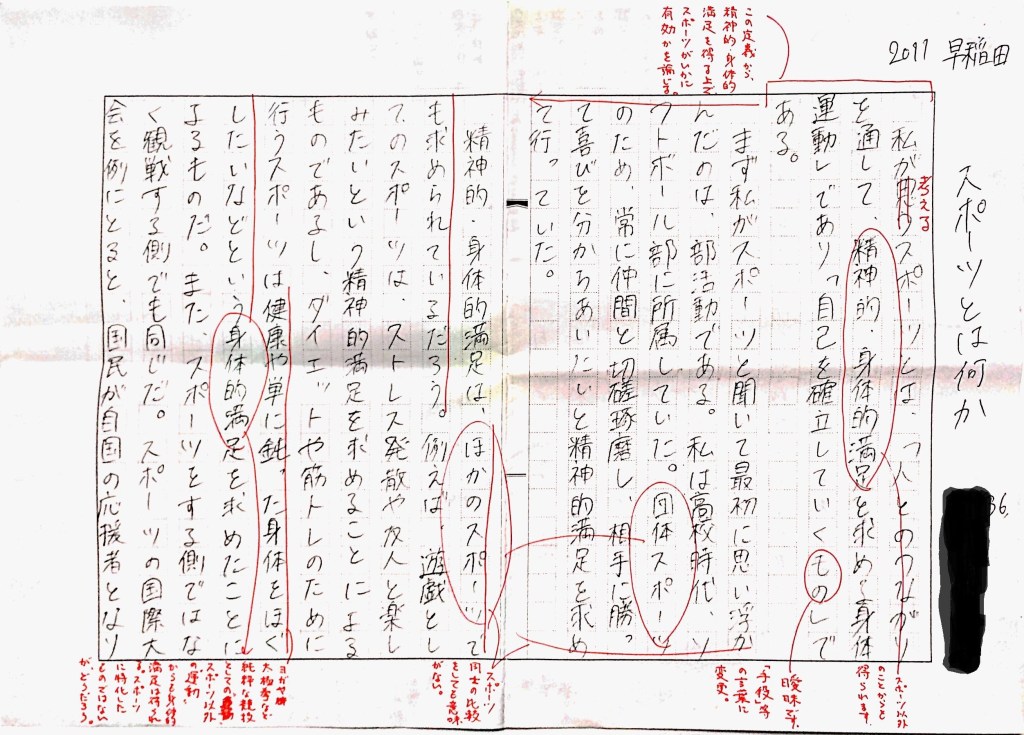 2011 早稲田
スポーツとは何か
36.
私がスポーツとは、「人とのつながり
考える
を通して、精神的、身体的満足を求める身体
運動」であり「自己を確立していくもの」で
ある。
まず私がスポーツと聞いて最初に思い浮か
んだのは、部活動である。私は高校時代、ソ
フトボール部に所属していた。団体スポーツ
のため、常に仲間と切磋琢磨し、相手に勝っ
て喜びを分かちあいたいと精神的満足を求め
て行っていた。
精神的・身体的満足は、ほかのスポーツで
も求められているだろう。例えば、遊戯とし
てのスポーツは、ストレス発散や友人と楽し
みたいという精神的満足を求めることによる
ものであるし、ダイエットや筋トレのために
行うスポーツは健康や単に鈍った身体をほぐ
したいなどという身体的満足を求めたことに
よるものだ。また、スポーツをする側ではな
く観戦する側でも同じだ。スポーツの国際大
会を例にとると、国民が自国の応援者となり
この定義から、
精神的・身体的
満足を得る上で
スポーツがいかに
有効かを論じる。
スポーツ以外
のことからも
得られます。
曖昧です。
「手段」等
の言葉に
変更。
スポーツ
同士の比較
をしても意味
がない。
ヨガや
太極拳など
純粋な競技
としての
スポーツ以外
の「運動」
からも身体的
満足は得られ
る。スポーツ
に特化した
ものではない
が、どうだろう。